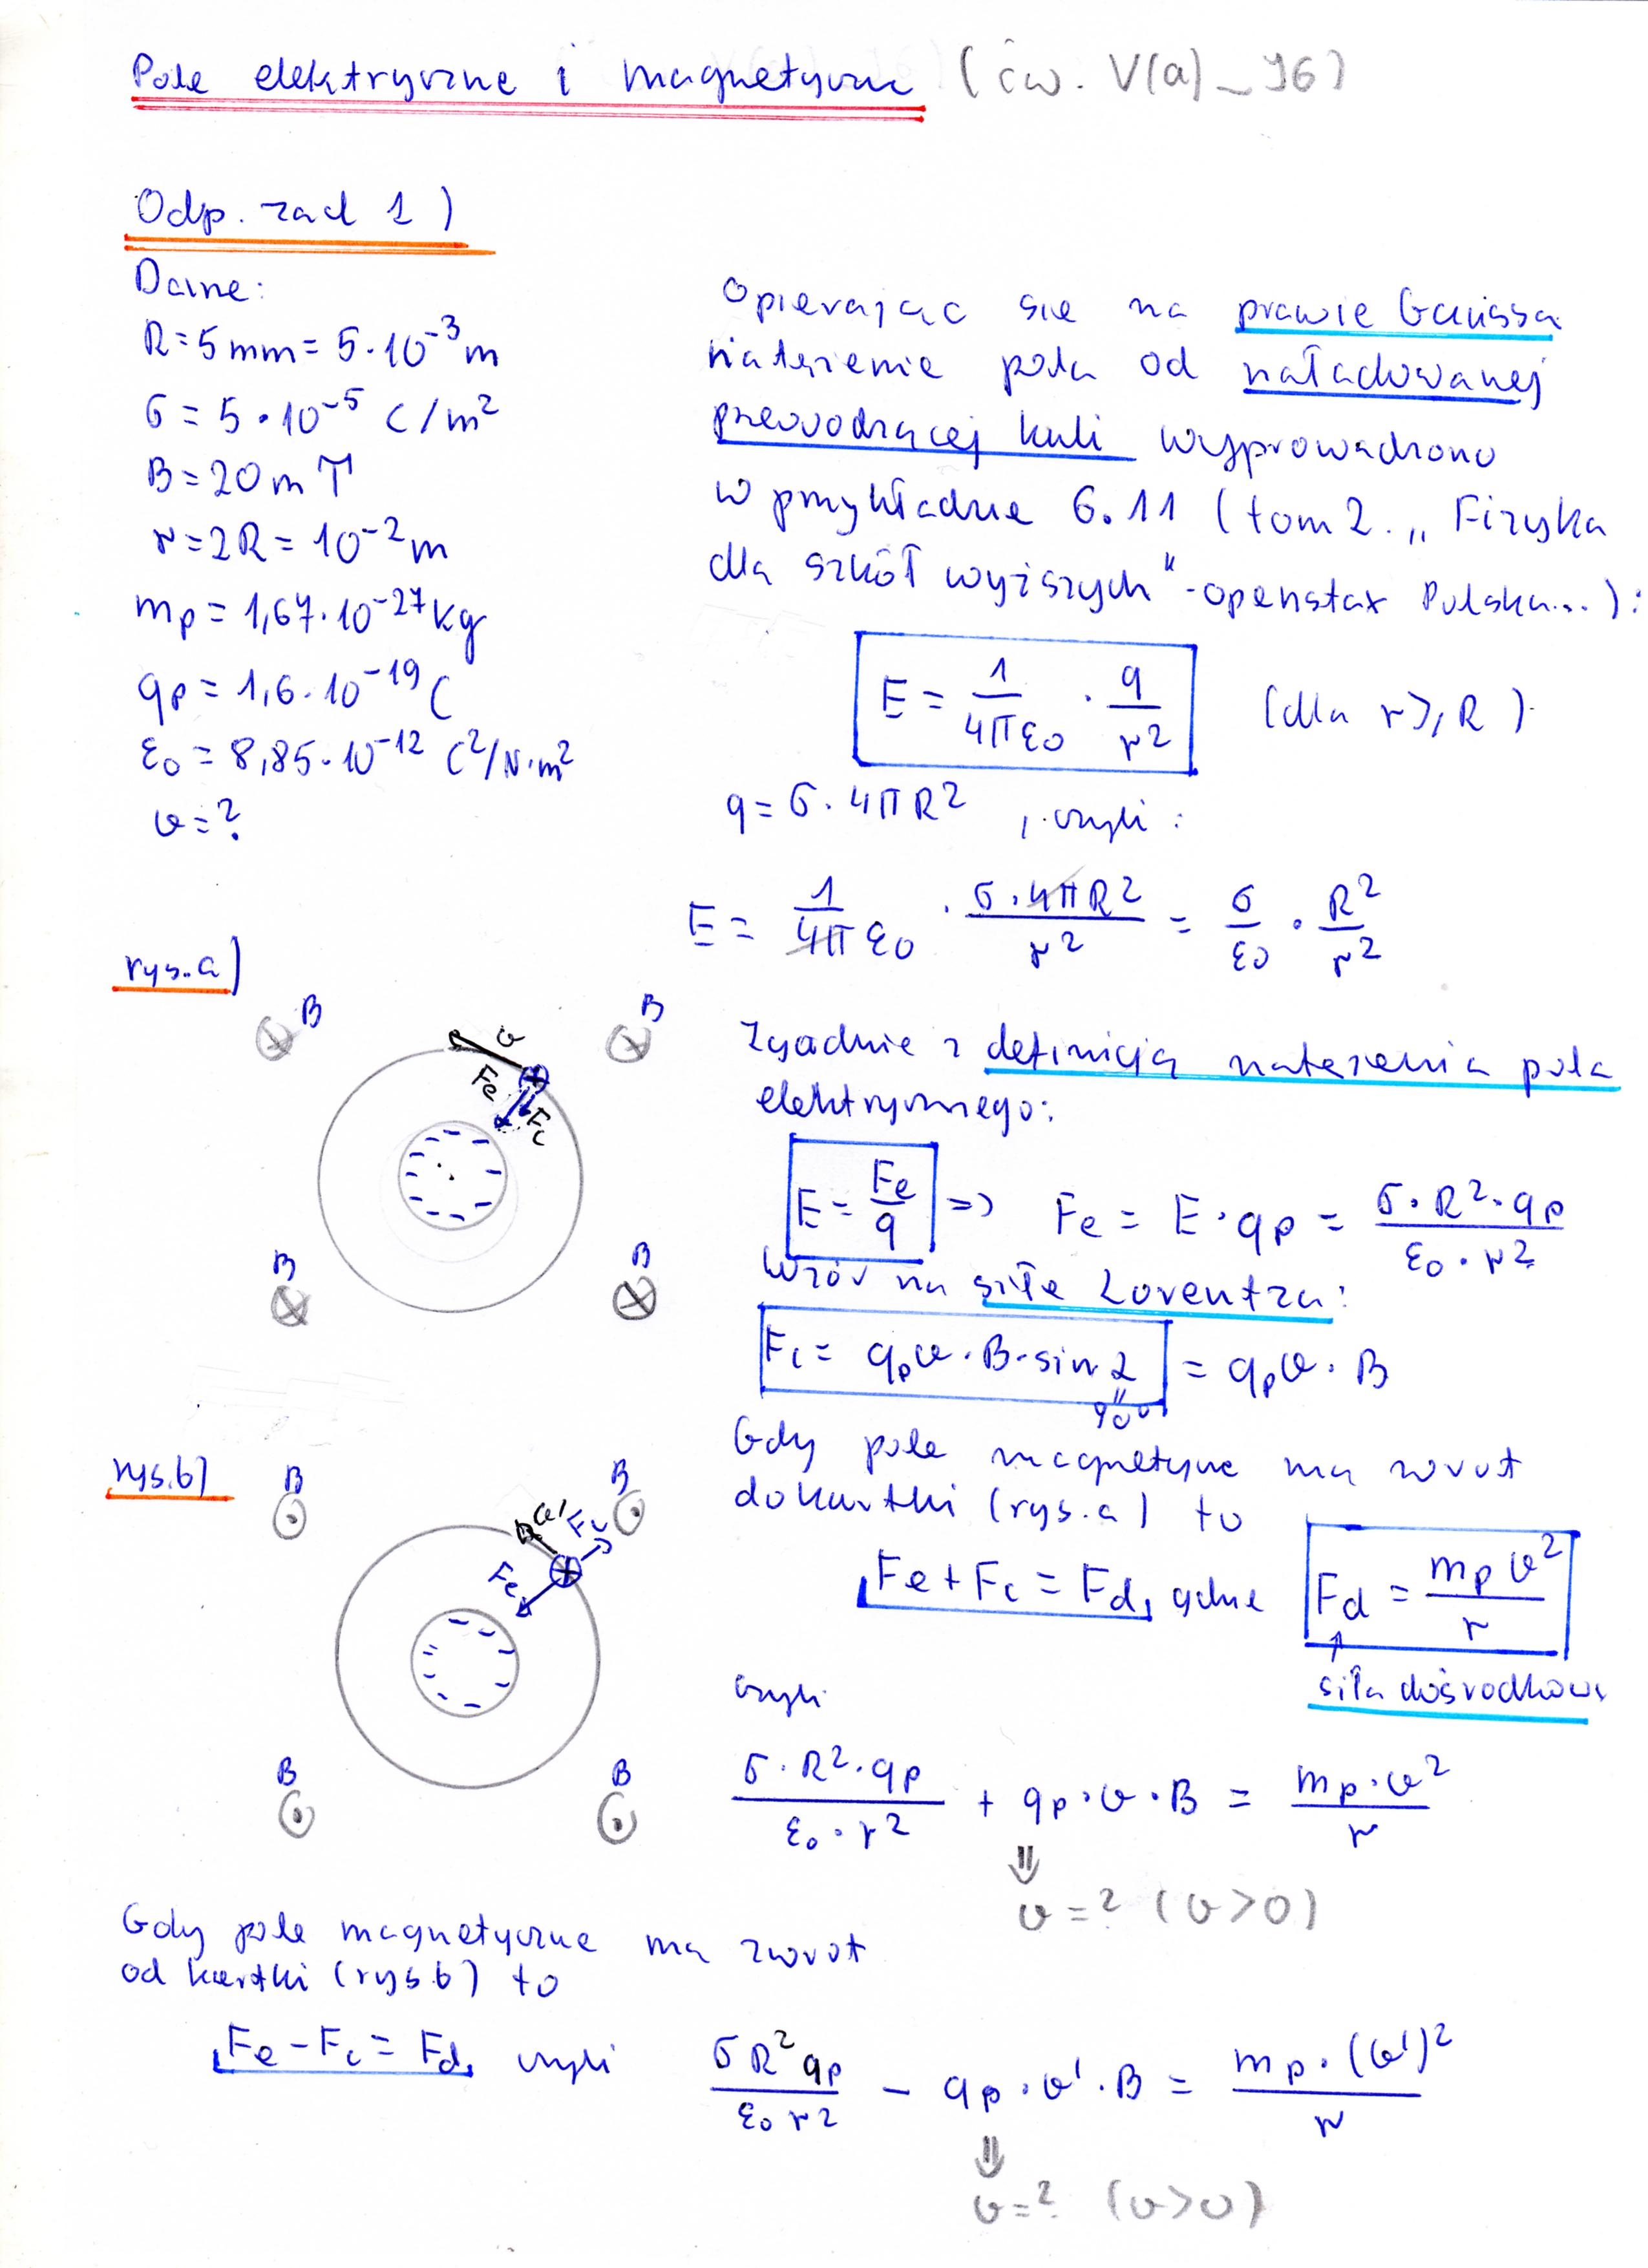 Pole elektryczne i magnetyczne (ćw. V(a)_J6)
Odp. zad 1)
Dane:
R = 5 mm = 5·10⁻³ m
σ = 5·10⁻⁵ C/m²
B = 20 mT
r = 2R = 10⁻² m
mp = 1,67·10⁻²⁷ kg
qp = 1,6·10⁻¹⁹ C
ε₀ = 8,85·10⁻¹² C²/N·m²
v = ?
Opierając się na prawie Gaussa
natężenie pola od naładowanej
przewodzącej kuli wyprowadzono
w przykładzie 6.11 (tom 2. „Fizyka
dla szkół wyższych" - openstax Polska...):
E = 1/(4πε₀) · q/r² (dla r ≥ R)
q = σ·4πR², czyli:
E = 1/(4πε₀) · σ·4πR²/r² = σ/ε₀ · R²/r²
rys.a)
B B
v
Fe
FL
B B
Zgodnie z definicją natężenia pola
elektrycznego:
E = Fe/q => Fe = E·qp = σ·R²·qp/(ε₀·r²)
Wzór na siłę Lorentza:
FL = qp v·B·sin α = qp v·B
90°
Gdy pole magnetyczne ma zwrot
do kartki (rys.a) to
Fe + FL = Fd, gdzie Fd = mp v²/r
siła dośrodkowa
czyli
σ·R²·qp/(ε₀·r²) + qp·v·B = mp·v²/r
⇓
v = ? (v>0)
rys.b)
B B
v' FL
Fe
B B
Gdy pole magnetyczne ma zwrot
od kartki (rys b) to
Fe - FL = Fd, czyli σR²qp/(ε₀r²) - qp·v'·B = mp·(v')²/r
⇓
v = ? (v>0)